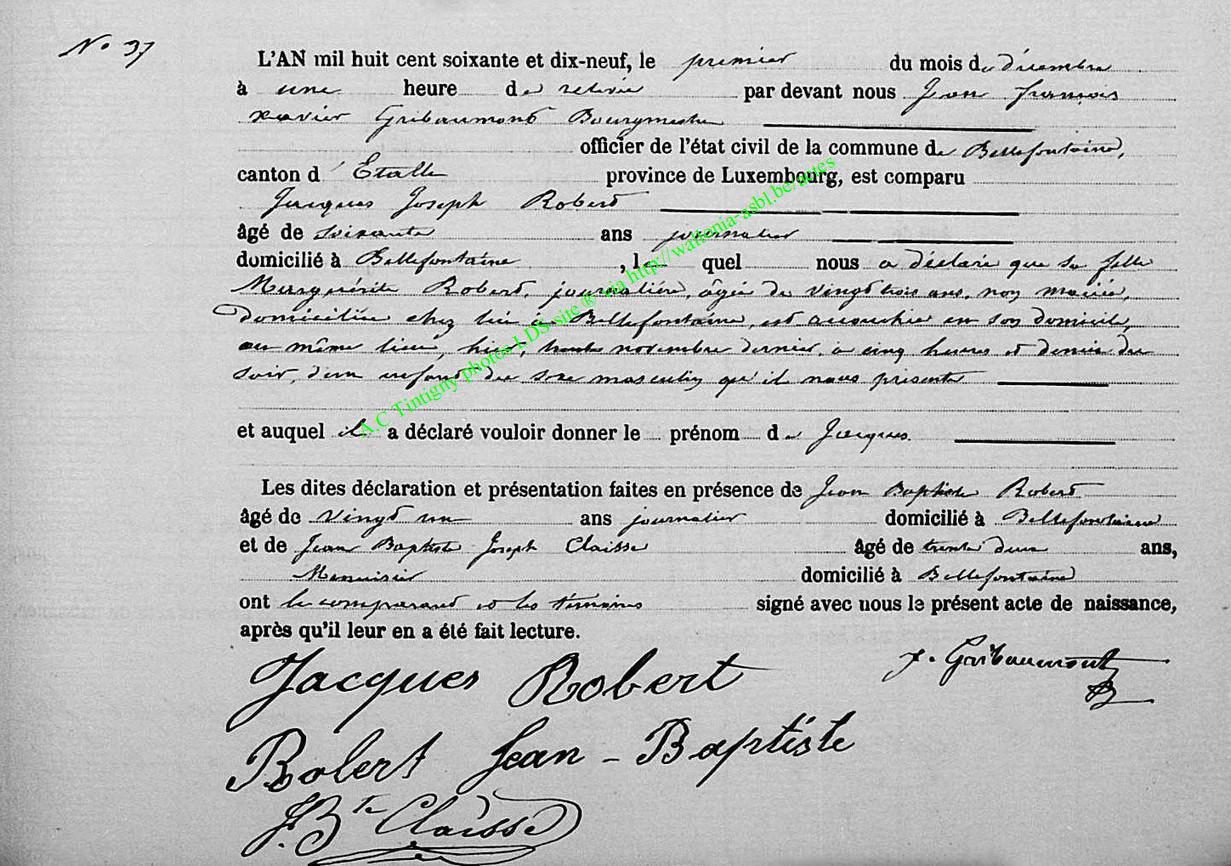 N° 37
L'AN mil huit cent soixante et dix-neuf, le premier du mois de décembre
à une heure de relevée par devant nous Jean françois
xavier Gribaumont Bourgmestre
officier de l'état civil de la commune de Bellefontaine,
canton d'Etalle province de Luxembourg, est comparu
Jacques Joseph Robert
âgé de soixante ans journalier
domicilié à Bellefontaine, lequel nous a déclaré que sa fille
Marguérite Robert, journalière, âgée de vingt trois ans, non mariée,
domiciliée chez lui à Bellefontaine, est accouchée en son domicile,
au même lieu, hier, trente novembre dernier, à cinq heures et demie du
soir, d'un enfant du sexe masculin qu'il nous présente
et auquel il a déclaré vouloir donner le prénom de Jacques.
Les dites déclaration et présentation faites en présence de Jean Baptiste Robert
âgé de vingt un ans journalier domicilié à Bellefontaine
et de Jean Baptiste Joseph Claisse âgé de trente deux ans,
Menuisier domicilié à Bellefontaine
ont le comparant et les témoins signé avec nous le présent acte de naissance,
après qu'il leur en a été fait lecture.
Jacques Robert
J. Gribaumont
Robert Jean-Baptiste
J. Bte Claisse
A.C Tintigny photos LDS-site ® via http://waltonia-asbl.be/actes